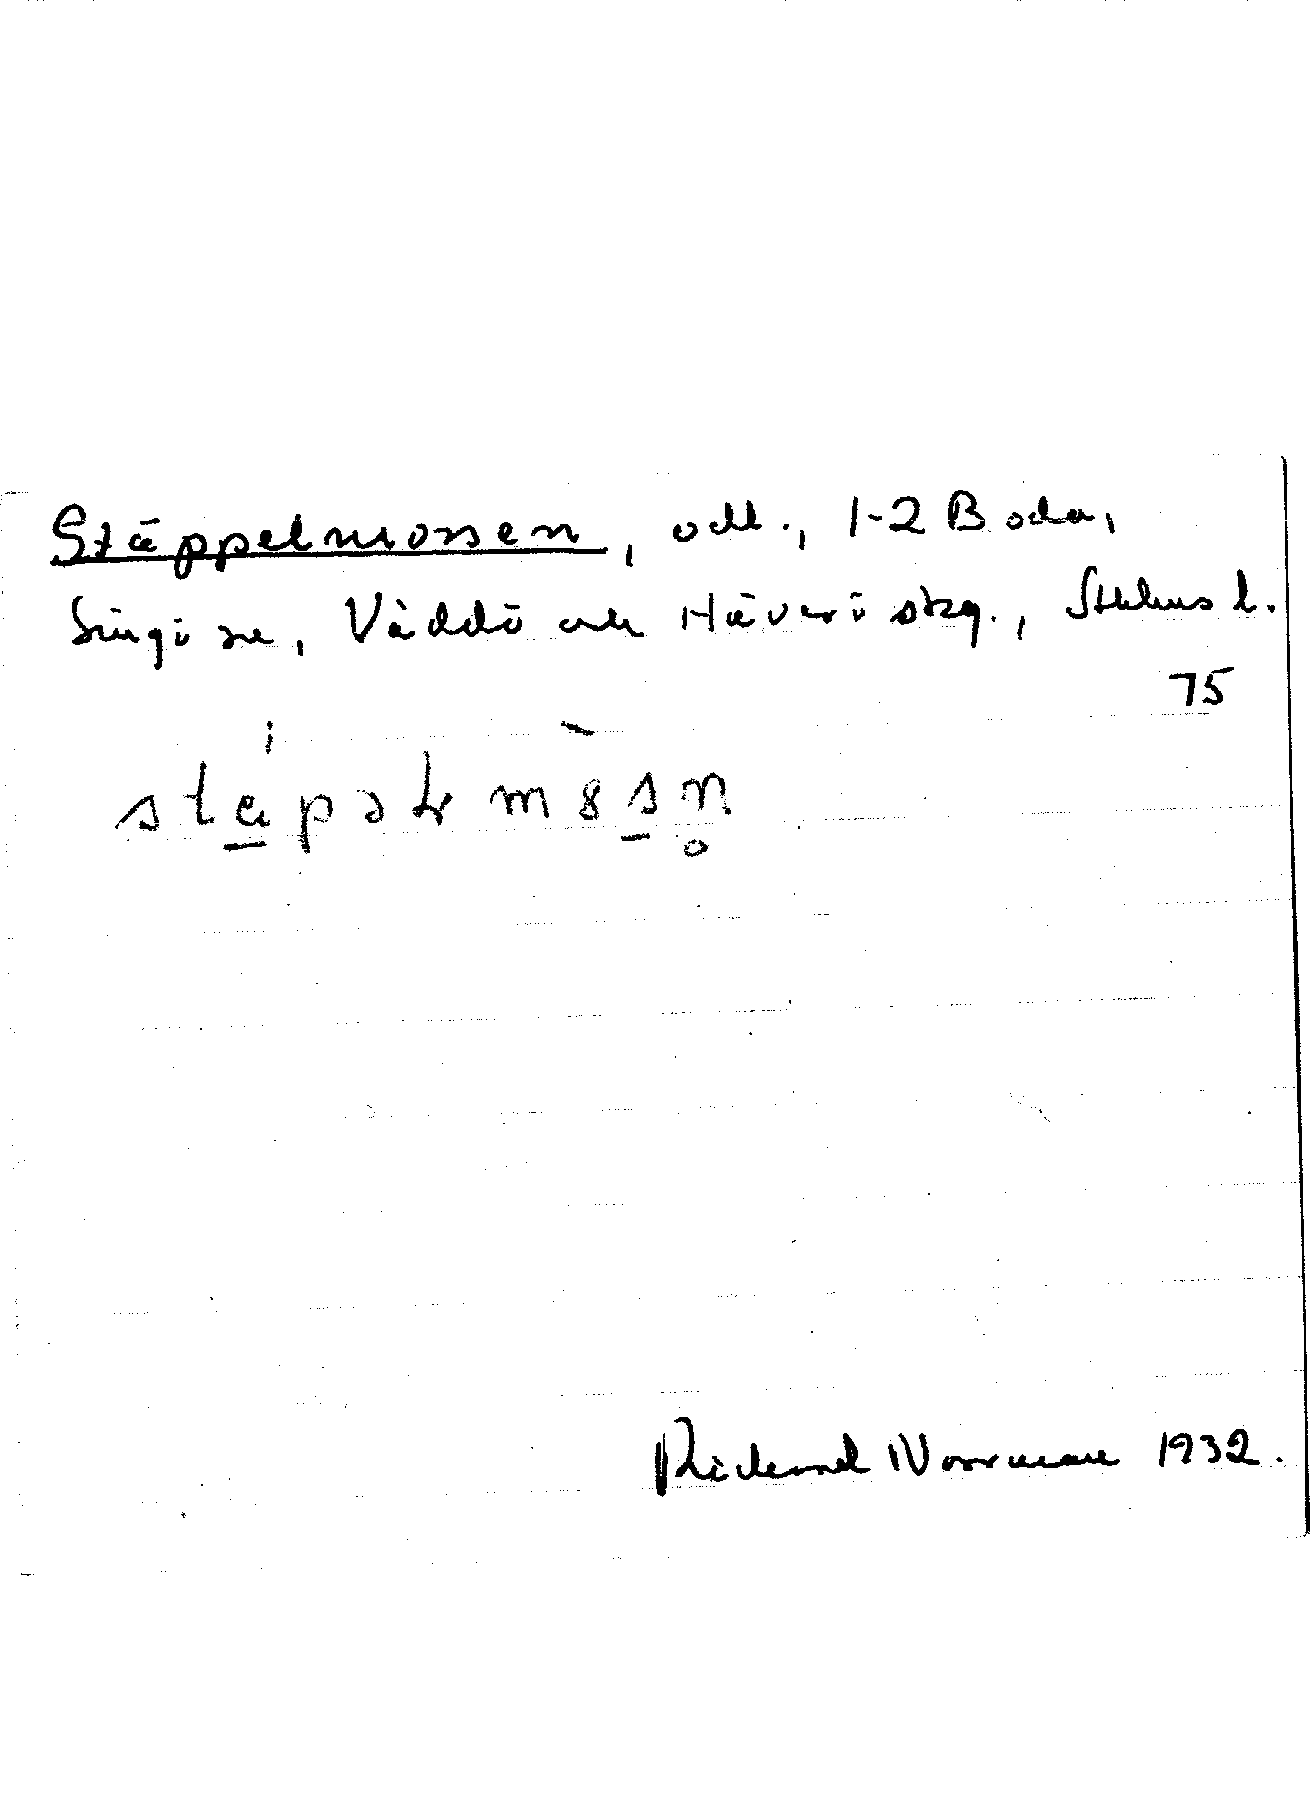 Stäppelmossen, odl., 1-2 Boda,
Singö sn, Väddö och Häverö skg., Sthlms l.
75
stäpəɫmȣsn̥
Rickard Norrman 1932.